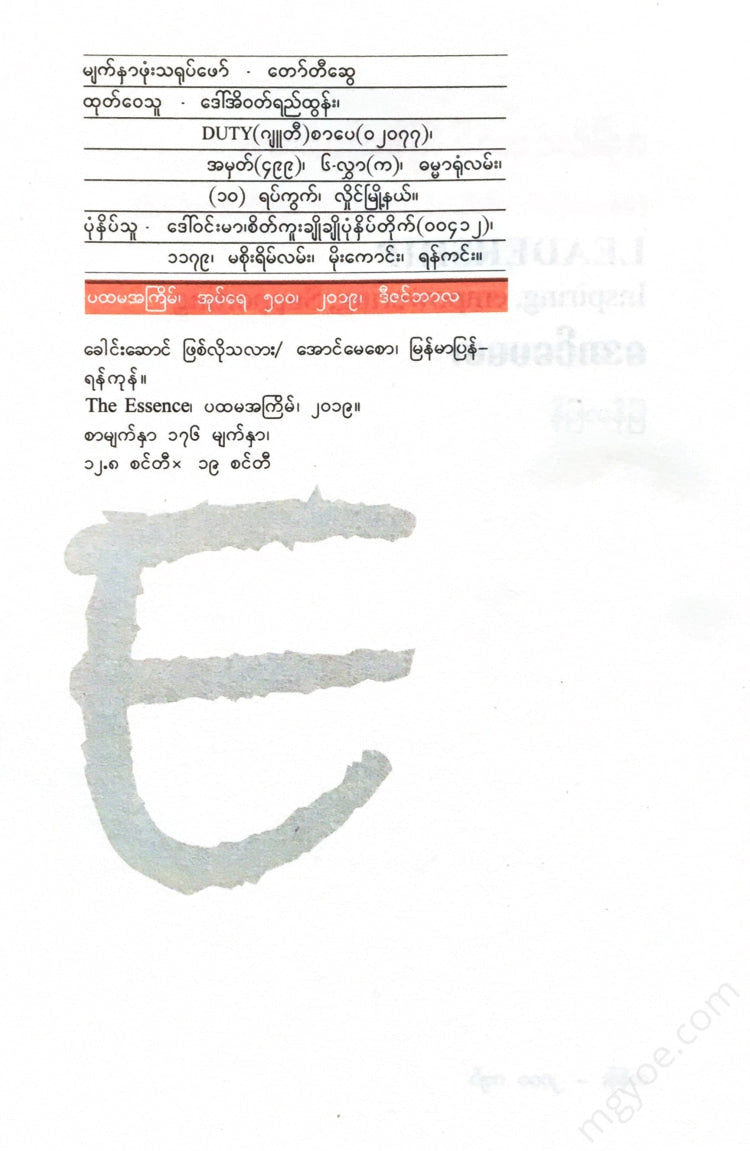 မျက်နှာဖုံးသရုပ်ဖော် - တော်တီဆွေ
ထုတ်ဝေသူ - ဒေါ်အိဝတ်ရည်ထွန်း၊
DUTY(ဂျူတီ)စာပေ(၀၂၀၇၇)၊
အမှတ်(၄၉၉)၊ ၆-လွှာ(က)၊ ဓမ္မာရုံလမ်း၊
(၁၀) ရပ်ကွက်၊ လှိုင်မြို့နယ်။
ပုံနှိပ်သူ - ဒေါ်ဝင်းမာ၊စိတ်ကူးချိုချိုပုံနှိပ်တိုက်(၀၀၄၁၂)၊
၁၁၇၉၊ မစိုးရိမ်လမ်း၊ မိုးကောင်း၊ ရန်ကင်း။
ပထမအကြိမ်၊ အုပ်ရေ ၅၀၀၊ ၂၀၁၉၊ ဒီဇင်ဘာလ
ခေါင်းဆောင် ဖြစ်လိုသလား/ အောင်မေစော၊ မြန်မာပြန်–
ရန်ကုန်။
The Essence၊ ပထမအကြိမ်၊ ၂၀၁၉။
စာမျက်နှာ ၁၇၆ မျက်နှာ၊
၁၂.၈ စင်တီ× ၁၉ စင်တီ
mgyoe.com